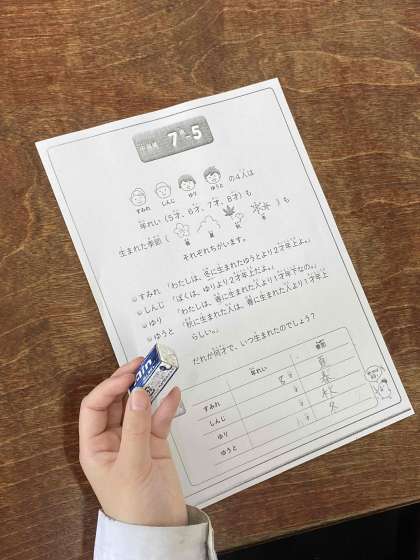 中級編 7-5
すみれ しんじ ゆり ゆうと の4人は
年れい（5才、6才、7才、8才）も
生まれた季節（ 春 夏 秋 冬 ）も
それぞれちがいます。
すみれ「わたしは、冬に生まれたゆうとより2才年上よ。」
しんじ「ぼくは、ゆりより2才年上だよ。」
ゆり「わたしは、春に生まれた人より1才年下なの。」
ゆうと「秋に生まれた人は、春に生まれた人より1才年上
らしい。」
だれが何才で、いつ生まれたのでしょう？
年れい 季節
すみれ 8才 夏
しんじ 才 春
ゆり 才 秋
ゆうと 才 冬